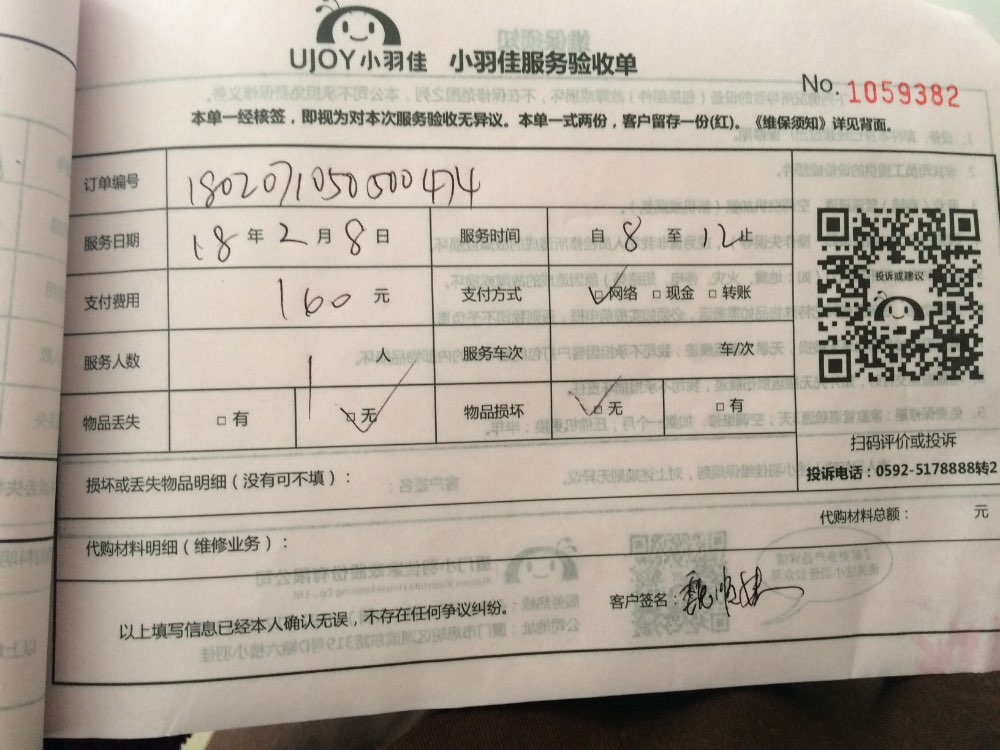 UJOY小羽佳 小羽佳服务验收单
No. 1059382
本单一经核签，即视为对本次服务验收无异议。本单一式两份，客户留存一份(红)。《维保须知》详见背面。
订单编号 180207105050000474
服务日期 18 年 2 月 8 日 服务时间 自 8 至 12 止
支付费用 160 元 支付方式 ☑网络 □现金 □转账
服务人数 1 人 服务车次 车/次
物品丢失 □有 ☑无 物品损坏 ☑无 □有
投诉或建议
扫码评价或投诉
投诉电话：0592-5178888转2
损坏或丢失物品明细（没有可不填）：
代购材料总额： 元
代购材料明细（维修业务）：
以上填写信息已经本人确认无误，不存在任何争议纠纷。
客户签名：